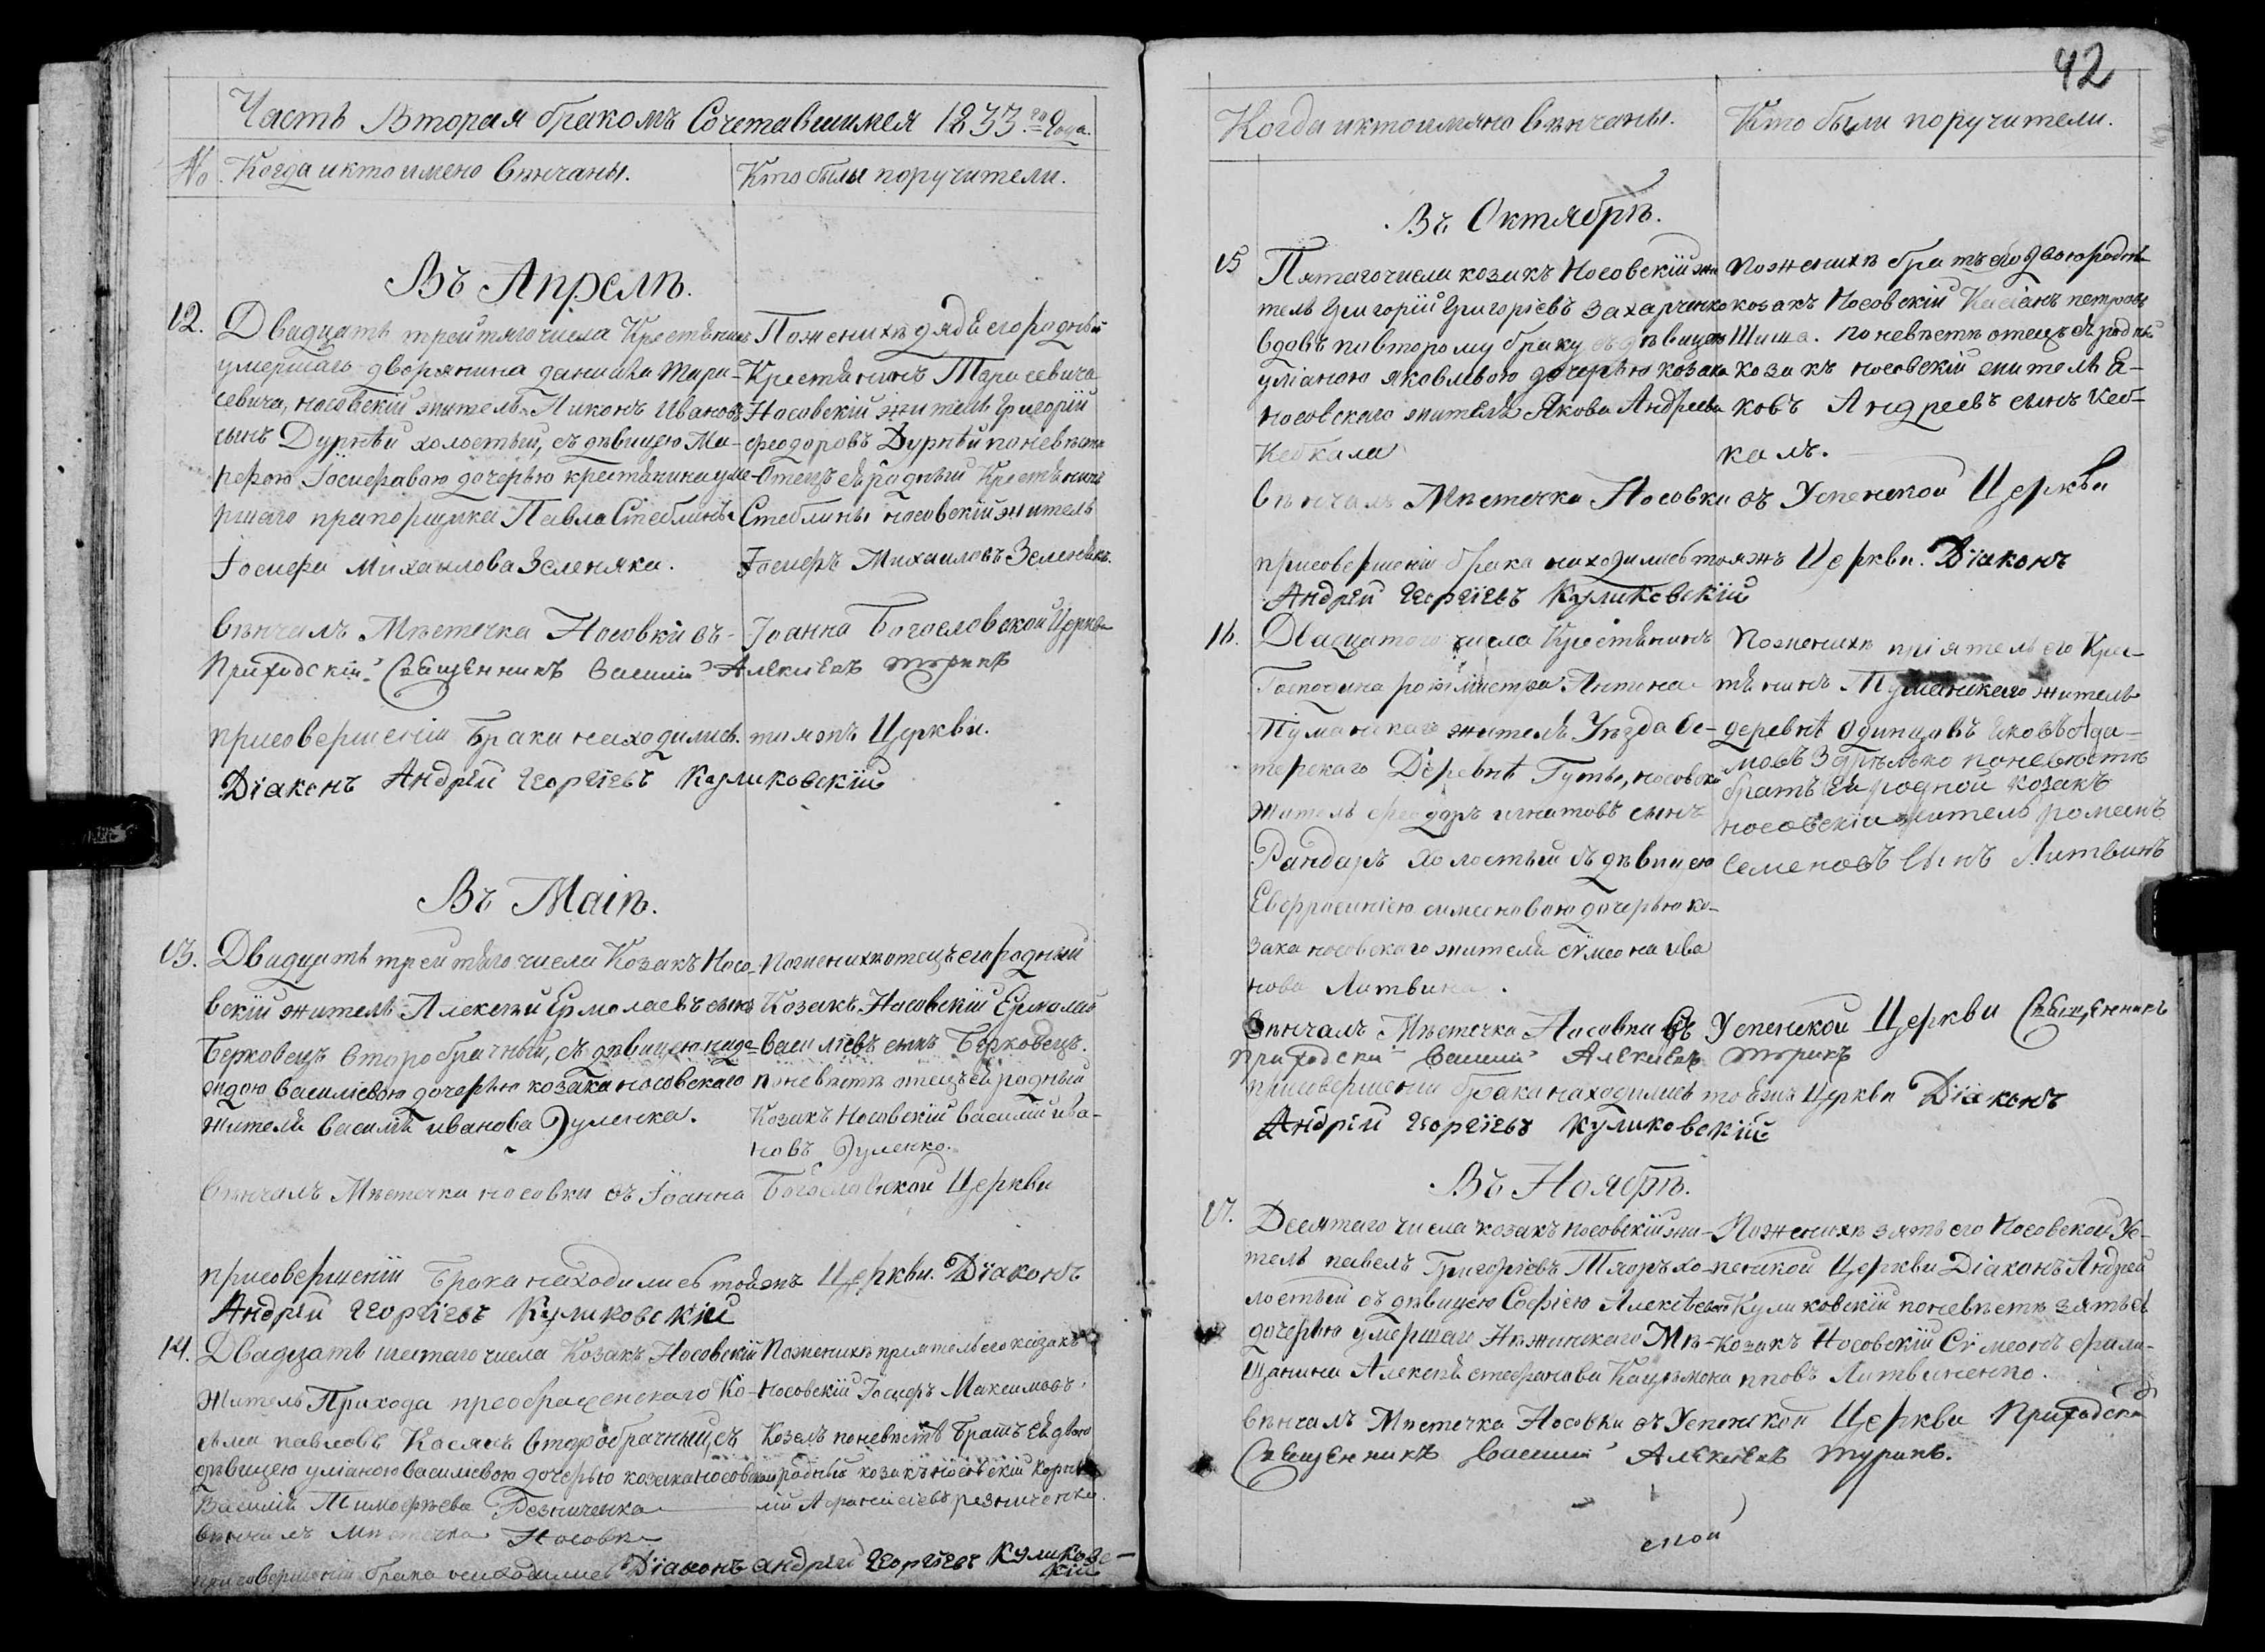 42
Часть Вторая бракомъ Сочетавшимся 1833 го Года.
No. Когда и кто имено венчаны. Кто были поручители.
Въ Апреле.
12. Двадцать трейтяго числа Крестьянинъ
умершаго дворянина данила Тара-
севича, носовскій житель Никонъ Ивановъ
сынъ Дурнѣй холостый, съ дѣвицею Ма-
рефою Іосифавою дочерью крестьянина уме-
ршаго прапорщика Павла Стеблины
Іосифа Михаилова Зеленяка.
По женихѣ дядя его родный
Крестьянинъ Тарасевича
Носовскій житель Григорій
феодоровъ Дурнѣй по невѣсте
Отецъ ея родный Крестьянинъ
Стеблины носовскій житель
Іосифъ Михаиловъ Зеленякъ.
Вѣнчалъ Мѣстечка Носовки съ- Іоанна Богословской Церкви
Приходскій Священникъ Василий Алексіевъ
присовершеніи Брака находились. тояжъ Церкви.
Діаконъ Андрѣй Георгіевъ Куликовскій
Въ Маіѣ.
13. Двадцать трейтяго числа Козакъ Носо-
вскій житель Алексѣй Ермолаевъ сынъ
Берковецъ второбрачный, съ дѣвицею наде-
ждою василіевою дочерью козака носовскаго
жителя василія иванова Дуленка.
По женихѣ отецъ его родный
Козакъ Носовскій Ермолай
василіевъ сынъ Берковецъ.
по невѣстѣ отецъ ей родный
Козакъ Носовскій василій ива-
новъ Дуленко.
Вѣнчалъ Мѣстечка носовки съ Іоанна Богословской Церкви
присовершеніи Брака находились тойжъ Церкви. Діаконъ
Андрѣй Георгіевъ Куликовскій
14. Двадцать шестаго числа Козакъ Носовскій
житель Прихода преображенскаго Ко-
сьма павловъ Косякъ второбрачный, съ
дѣвицею уліаною василіевою дочерью козака носовскаго
Василія Тимофѣева Резниченка
По женихѣ пріятель его козакъ
Носовскій Іосифъ Максимовъ
Козелъ по невѣстѣ Братъ ея двою
родный козакъ носовскій Корни-
лій Афанасіевъ резниченко.
вѣнчалъ Мѣстечка Носовки
присовершеніи брака находились Діаконъ андрѣй Георгіевъ Куликовс-
кій
Когда и кто имяно вѣнчаны. Кто были поручители.
Въ Октябрѣ.
15 Пятаго числа козакъ Носовскій жи
тель Григорій Григоріевъ Захарченко
вдовъ повторому браку съ дѣвицею
уліаною яковлевою дочерью козака
носовскаго жителя Якова Андреева
Кебкала
По женихѣ братъ его двоюродны
козакъ Носовскій Касіанъ петровъ
Шиша. по невѣстѣ отецъ ея родны
козакъ носовскій житель Я-
ковъ Андреевъ сынъ Кеб-
калъ.
вѣнчалъ Мѣстечка Носовки съ Успенской Церкви
присовершеніи брака находились тояжъ Церкви. Діаконъ
Андрѣй Георгіевъ Куликовскій
16. Двадцатого числа Крестьянинъ
Господина ротмистра Антина
Туманскаго житель Уезда Ос-
терскаго Деревнѣ Гуты, носовски
житель феодоръ игнатовъ сынъ
Рандаръ холостый съ дѣвицею
Евфросиніею симеоновою дочерью ко-
зака носовскаго жителя сѵмеона ива
нова Литвина.
По женихѣ пріятель его Крес-
тьянинъ Туманскаго житель
деревнѣ одинцовъ яковъ Ада-
мовъ по невѣстѣ
братъ ея родной козакъ
носовскій житель романъ
семеновъ сынъ Литвинъ
Вѣнчалъ Мѣстечка Носовки съ Успенской Церкви Священникъ
Приходскій Василий Алексіевъ
присовершеніи брака находились тояжъ Церкви Діаконъ
Андрѣй Георгіевъ Куликовскій
Въ Ноябрѣ.
17. Десятаго числа козакъ носовскій жи-
тель павелъ Григоріевъ хо-
лостый съ дѣвицею Софіею Алексѣевою
дочерью умершаго Нѣжинскаго Мѣ-
щанина Алексѣя стефанова
По женихѣ зять его Носовской Ус-
пенской Церкви Діаконъ Андрѣй
Куликовскій по невѣстѣ зять ея
Козакъ Носовскій Сѵмеонъ фили-
пповъ Литвиненко.
вѣнчалъ Мѣстечка Носовки съ Успенской Церкви Приходскій
Священникъ Василий Алексіевъ